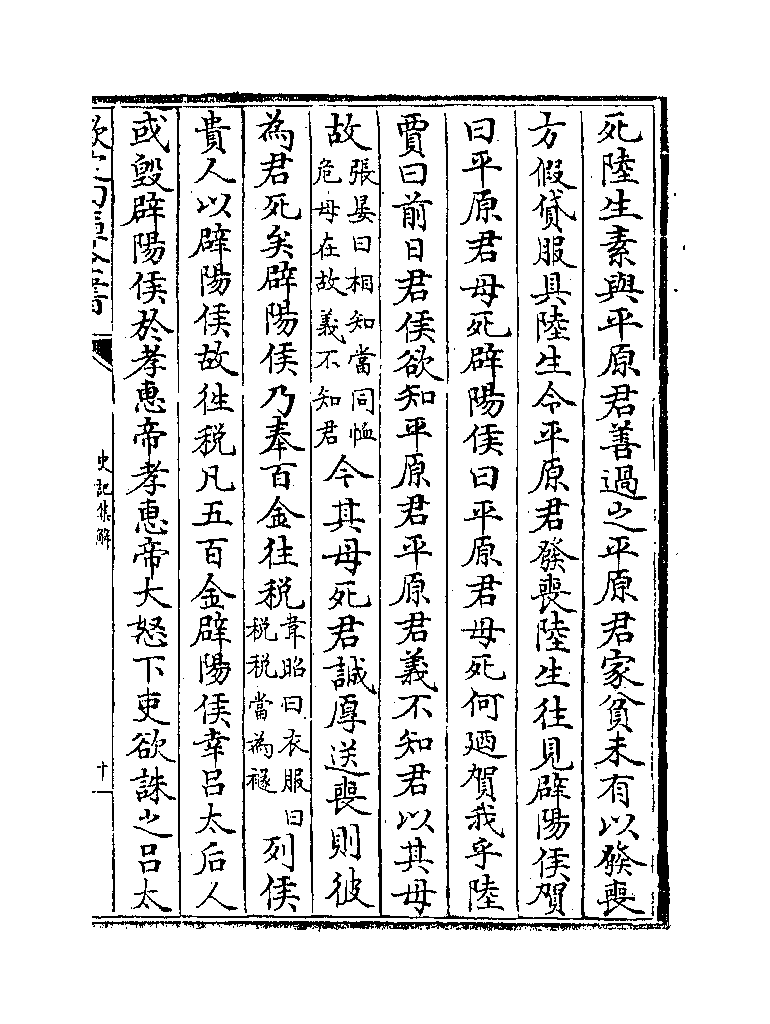 死陸生素與平原君善過之平原君家貧未有以發喪
方假貸服具陸生令平原君發喪陸生往見辟陽侯賀
曰平原君母死辟陽侯曰平原君母死何廼賀我乎陸
賈曰前日君侯欲知平原君平原君義不知君以其母
故張晏曰相知當同恤危母在故義不知君今其母死君誠厚送喪則彼
為君死矣辟陽侯乃奉百金往税韋昭曰衣服曰税税當為襚列侯
貴人以辟陽侯故往税凡五百金辟陽侯幸吕太后人
或毁辟陽侯於孝惠帝孝惠帝大怒下吏欲誅之吕太
史記集解
十